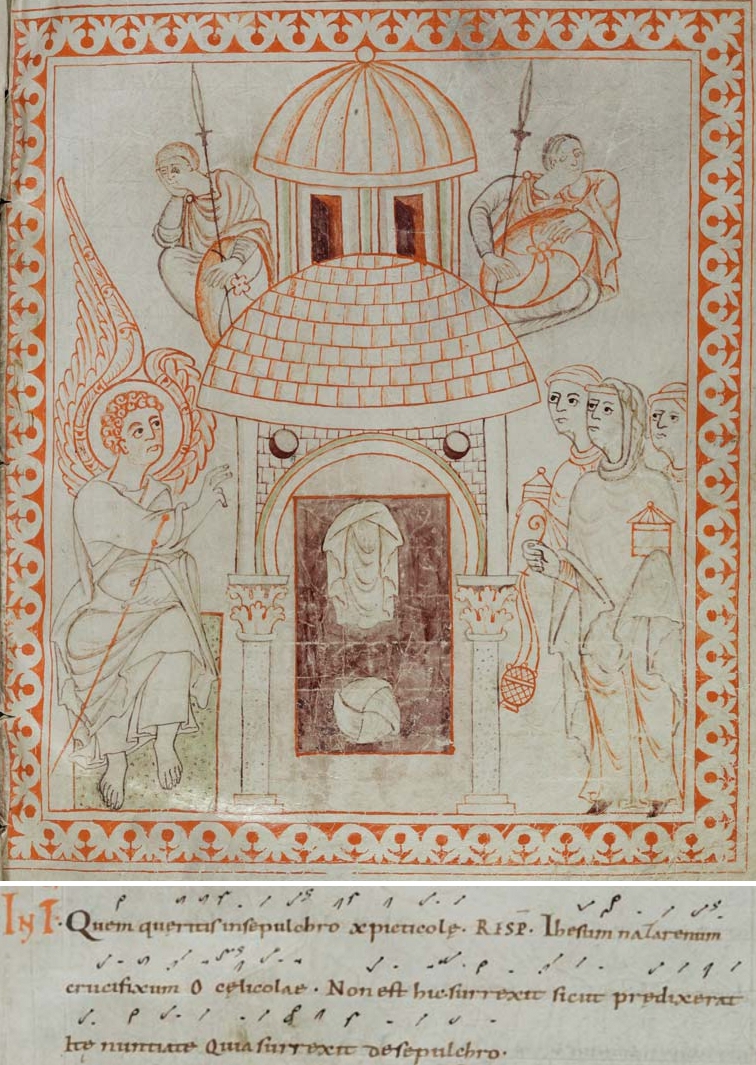 INT. Quem queritis insepulchro xpicticole. RISP. Ihesum nazarenum
crucifixum O celicolae. Non est hic surrexit sicut predixerat
Ite nuntiate Quia surrexit desepulchro.